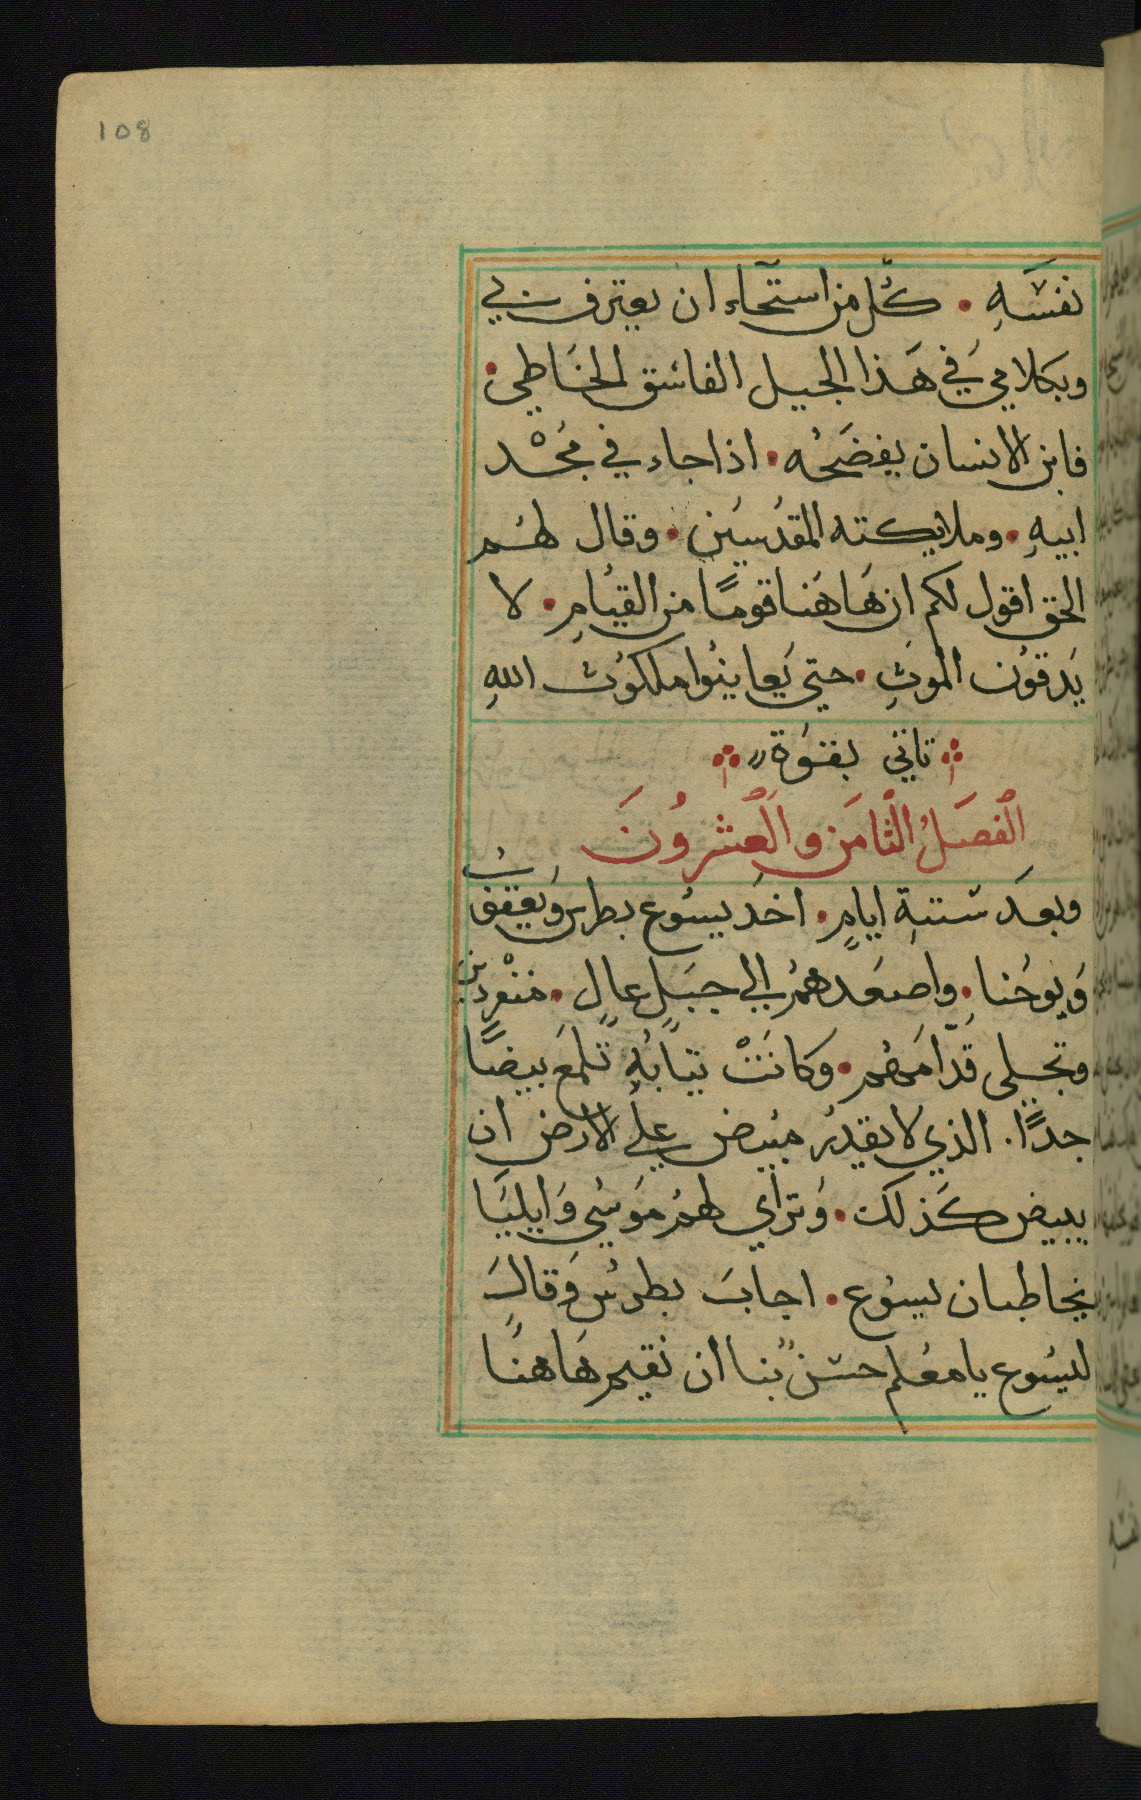 108
نفسَه • كُل من استحاء ان يعترف بي
وبكلامي في هَذا الجيل الفاسق الخاطي •
فابن الانسان يفضَحُه • اذا جاء في مجْد
ابيهِ • وملايكته المقدسين • وقال لهُم
الحق اقول لكم ان هَاهَنا قومًا من القيامِ • لا
يَدقوُن الموتِ • حتي يَعاينوُا ملكوُت اللهِ
تاتي بقوَة
الفصَلُ الثامَن والعِشروُنَ
وبعدَ ستةِ ايامٍ • اخدَ يسوُع بطرس وَيعقوُب
وَيوحَنا • واصعَدهمُ الي جبَلٍ عالٍ • منفردين
وتجلي قدّامَهُم • وكانَتْ تيابُهِ تلمَع بيضًا
جدًا . الذي لا يقدرُ مبُيض علي الارض ان
يبيض كَذلك • وَتراي لهمُ موَسُي وَايليَا
يخاطبان يسوُع • اجابَ بطرسُ وَقالَ
ليسوُع يا معُلم حسَنٌ بنا ان نقيم هَاهنُا